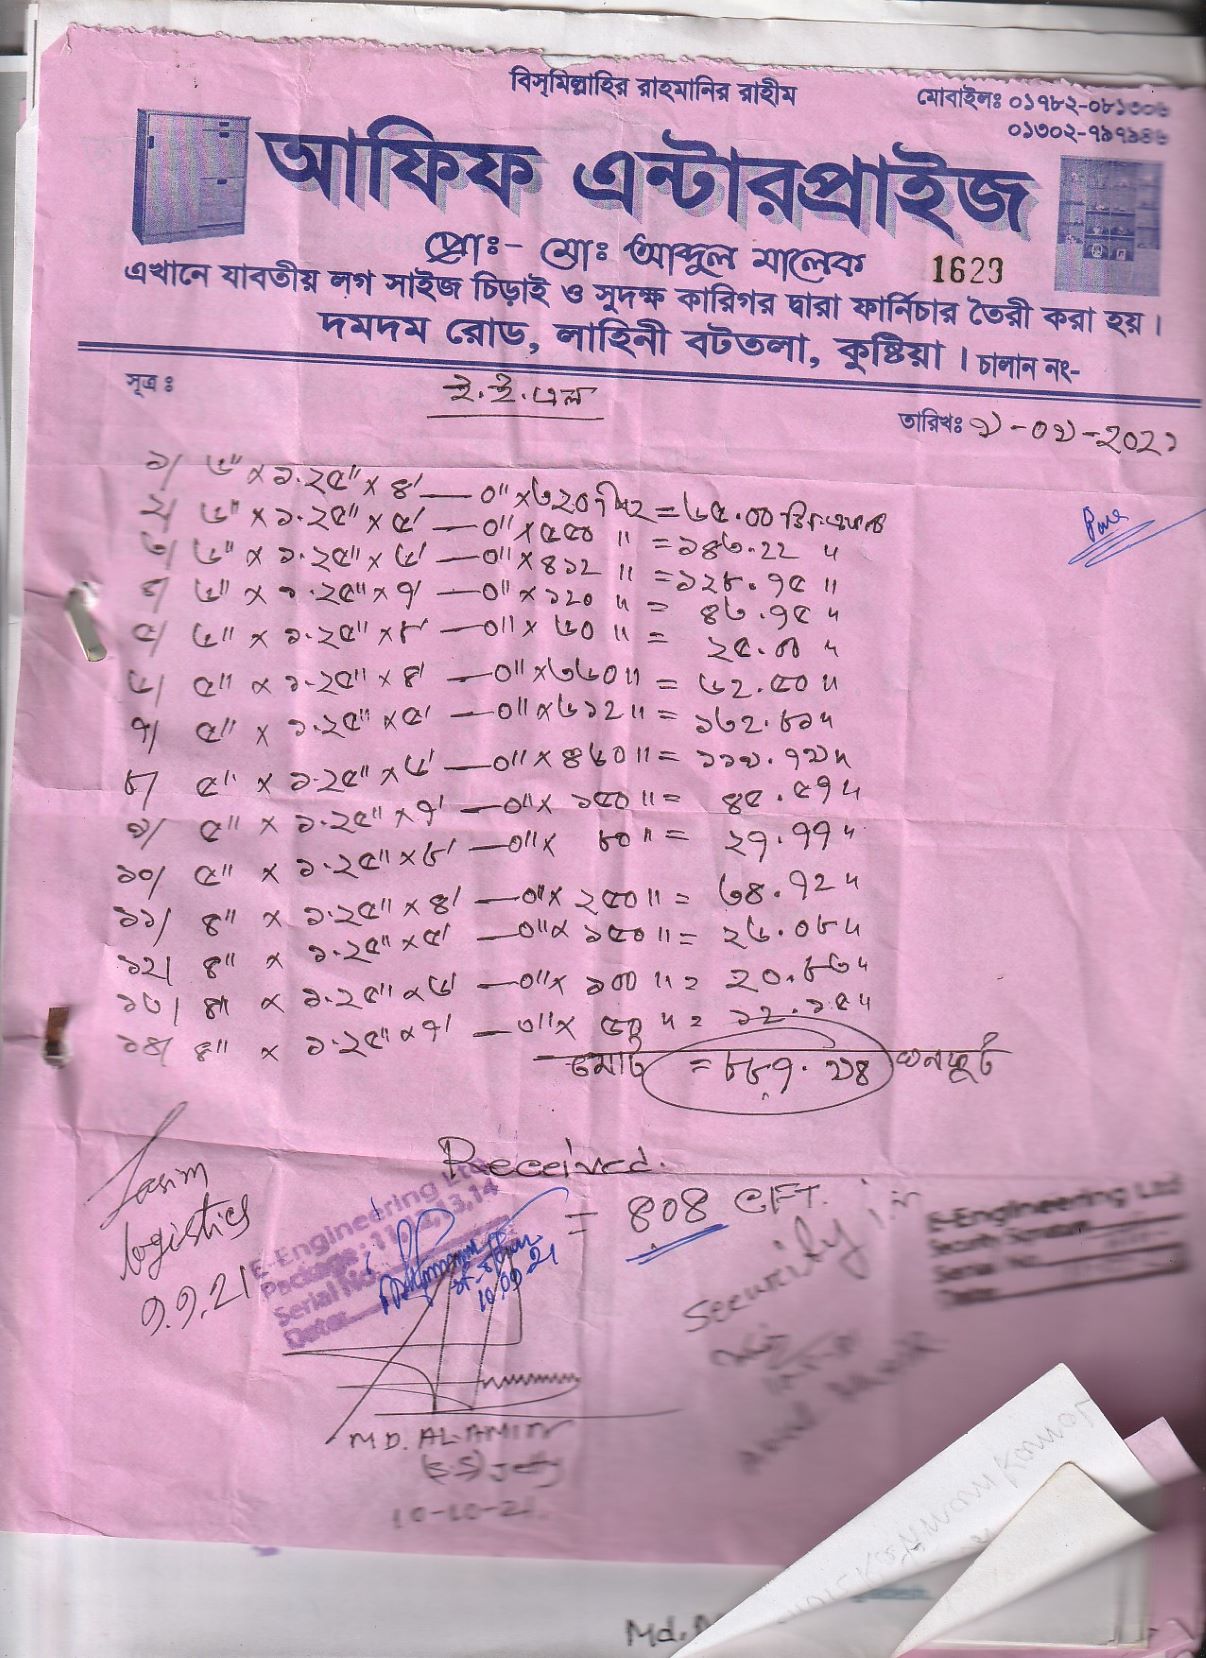 বিস্‌মিল্লাহির রাহমানির রাহীম
মোবাইলঃ ০১৭৮২-০৮১৩০৬
০১৩০২-৭৯৭৯৪৬
আফিফ এন্টারপ্রাইজ
প্রোঃ- মোঃ আব্দুল মালেক
1629
এখানে যাবতীয় লগ সাইজ চিড়াই ও সুদক্ষ কারিগর দ্বারা ফার্নিচার তৈরী করা হয়।
দমদম রোড, লাহিনী বটতলা, কুষ্টিয়া। চালান নং-
সূত্র ঃ
ই.ই.এল
তারিখঃ ৯-০৯-২০২১
১/ ৬" x ১.২৫" x ৪' — ০" x ৩২০ পিছ = ৬৫.০০
২/ ৬" x ১.২৫" x ৫' — ০" x ৫৫০ " = ১৪৩.২২ "
৩/ ৬" x ১.২৫" x ৬' — ০" x ৪১২ " = ১২৮.৭৫ "
৪/ ৬" x ১.২৫" x ৭' — ০" x ১২০ " = ৪৩.৭৫ "
৫/ ৬" x ১.২৫" x ৮' — ০" x ৬০ " = ২৫.০০ "
৬/ ৫" x ১.২৫" x ৪' — ০" x ৩৬০ " = ৬২.৫০ "
৭/ ৫" x ১.২৫" x ৫' — ০" x ৬১২ " = ১৩২.৮১ "
৮/ ৫" x ১.২৫" x ৬' — ০" x ৪৬০ " = ১১৯.৭৯ "
৯/ ৫" x ১.২৫" x ৭' — ০" x ১৫০ " = ৪৫.৫৭ "
১০/ ৫" x ১.২৫" x ৮' — ০" x ৮০ " = ২৭.৭৭ "
১১/ ৪" x ১.২৫" x ৪' — ০" x ২৫০ " = ৩৪.৭২ "
১২/ ৪" x ১.২৫" x ৫' — ০" x ১৫০ " = ২৬.০৪ "
১৩/ ৪" x ১.২৫" x ৬' — ০" x ১০০ " = ২০.৮৩ "
১৪/ ৪" x ১.২৫" x ৭' — ০" x ৫০ " = ১২.১৫ "
মোট = ৮৮৭.৯৪ ঘনফুট
Received.
= 808 CFT.
logistics
9.9.21
E-Engineering Ltd
Package: 11,12,13,14
Serial No.
Date:
10.09.21
MD. AL-AMIN
(S.S) Jetty
10-10-21
Security in
E-Engineering Ltd
Serial No.
Date:
Md.